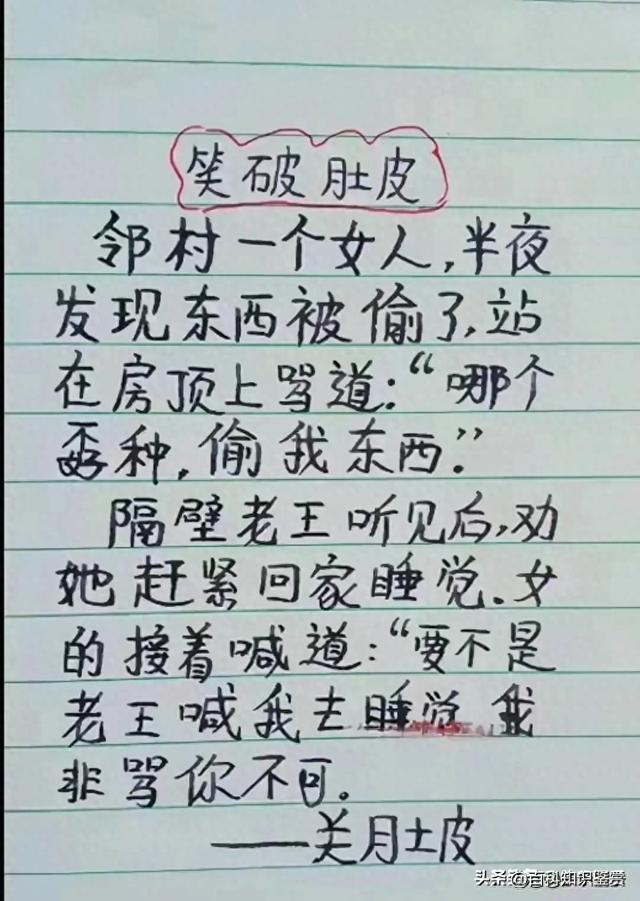 笑破肚皮
邻村一个女人,半夜
发现东西被偷了,站
在房顶上骂道:“哪个
孬种,偷我东西.”
隔壁老王听见后,劝
她赶紧回家睡觉.女
的接着喊道:“要不是
老王喊我去睡觉 我
非骂你不可。
——美月土皮
头条 @百科知识鉴赏